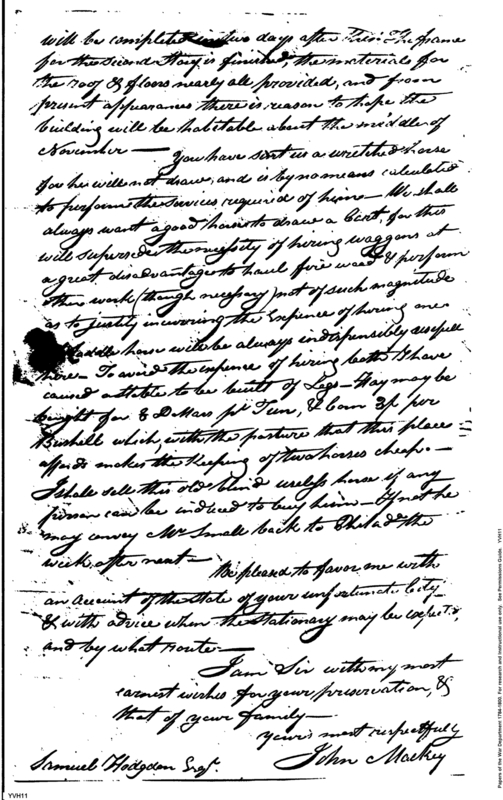 will be complete in two days after This The frame
for the second Story is finished, the materials for
the roof & floors nearly all provided, and from
present appearances there is reason to hope the
building will be habitable about the middle of
November — You have sent us a wretched horse
for he will not draw, and is by no means calculated
to perform the services required of him — We shall
always want a good horse to draw a Cart, for this
will supersede the necessity of hiring waggons at
a great disadvantage to haul fire wood & perform
other work (though necessary) not of such magnitude
as to justify incurring the Expence of hiring one
Saddle horse will be always indispensibly usefull
here — To avoid the expence of hiring both I have
caused a stable to be built of Logs — Hay may be
bought for 8 Dollars pr Tun, & Corn 3/ per
Bushell which with the pasture that this place
affords makes the keeping of two horses cheap. —
I shall sell this old blind useless horse if any
person can be induced to buy him — If not he
may convey Mr Small back to Philada the
week after next —
Be pleased to favor me with
an account of the state of your unfortunate City —
& with advice when the Stationary may be expected,
and by what route —
I am Sir with my most
earnest wishes for your preservation, &
that of your family —
yours most respectfully
John Mackey
Samuel Hodgdon Esqr.
YVH11
Papers of the War Department 1784-1800. For research and instructional use only. See Permissions Guide. YVH11